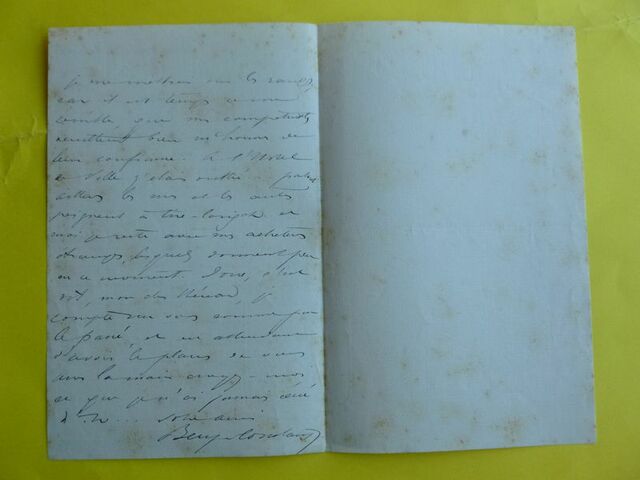 je me mettrai sur les rangs,
car il est temps ce me
semble, que mes compatriotes
veuillent bien m'honorer de
leur confiance. à l'Hotel
de Ville j'étais oublié
les uns et les autres
peignent à tire-larigot et
moi je reste avec mes acheteurs
étrangers, lesquels
en ce moment. Donc, c'est
dit, mon cher, j'y
compte sur vous comme par
le passé, et en attendant
d'avoir le plaisir de vous
serrer la main croyez-moi
ce que je n'ai jamais cessé
d'être... votre ami
Benj-Constant